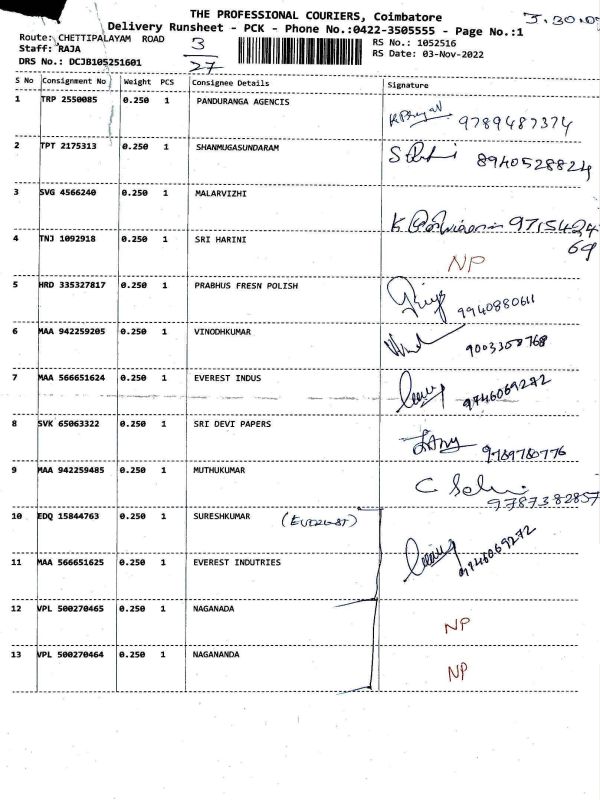 THE PROFESSIONAL COURIERS, Coimbatore
Delivery Runsheet - PCK - Phone No.:0422-3505555 - Page No.:1
Route: CHETTIPALAYAM ROAD
3
27
RS No.: 1052516
Staff: RAJA
RS Date: 03-Nov-2022
DRS No.: DCJB105251601
S No Consignment No Weight PCS Consignee Details Signature
1 TRP 2550085 0.250 1 PANDURANGA AGENCIS 9789487374
2 TPT 2175313 0.250 1 SHANMUGASUNDARAM 8940528824
3 SVG 4566240 0.250 1 MALARVIZHI 971542469
4 TNJ 1092918 0.250 1 SRI HARINI NP
5 HRD 335327817 0.250 1 PRABHUS FRESN POLISH 9940880611
6 MAA 942259205 0.250 1 VINODHKUMAR
7 MAA 566651624 0.250 1 EVEREST INDUS 9746069272
8 SVK 65063322 0.250 1 SRI DEVI PAPERS
9 MAA 942259485 0.250 1 MUTHUKUMAR 9787382857
10 EDQ 15844763 0.250 1 SURESHKUMAR
11 MAA 566651625 0.250 1 EVEREST INDUTRIES 9746069272
12 VPL 500270465 0.250 1 NAGANADA NP
13 VPL 500270464 0.250 1 NAGANANDA NP